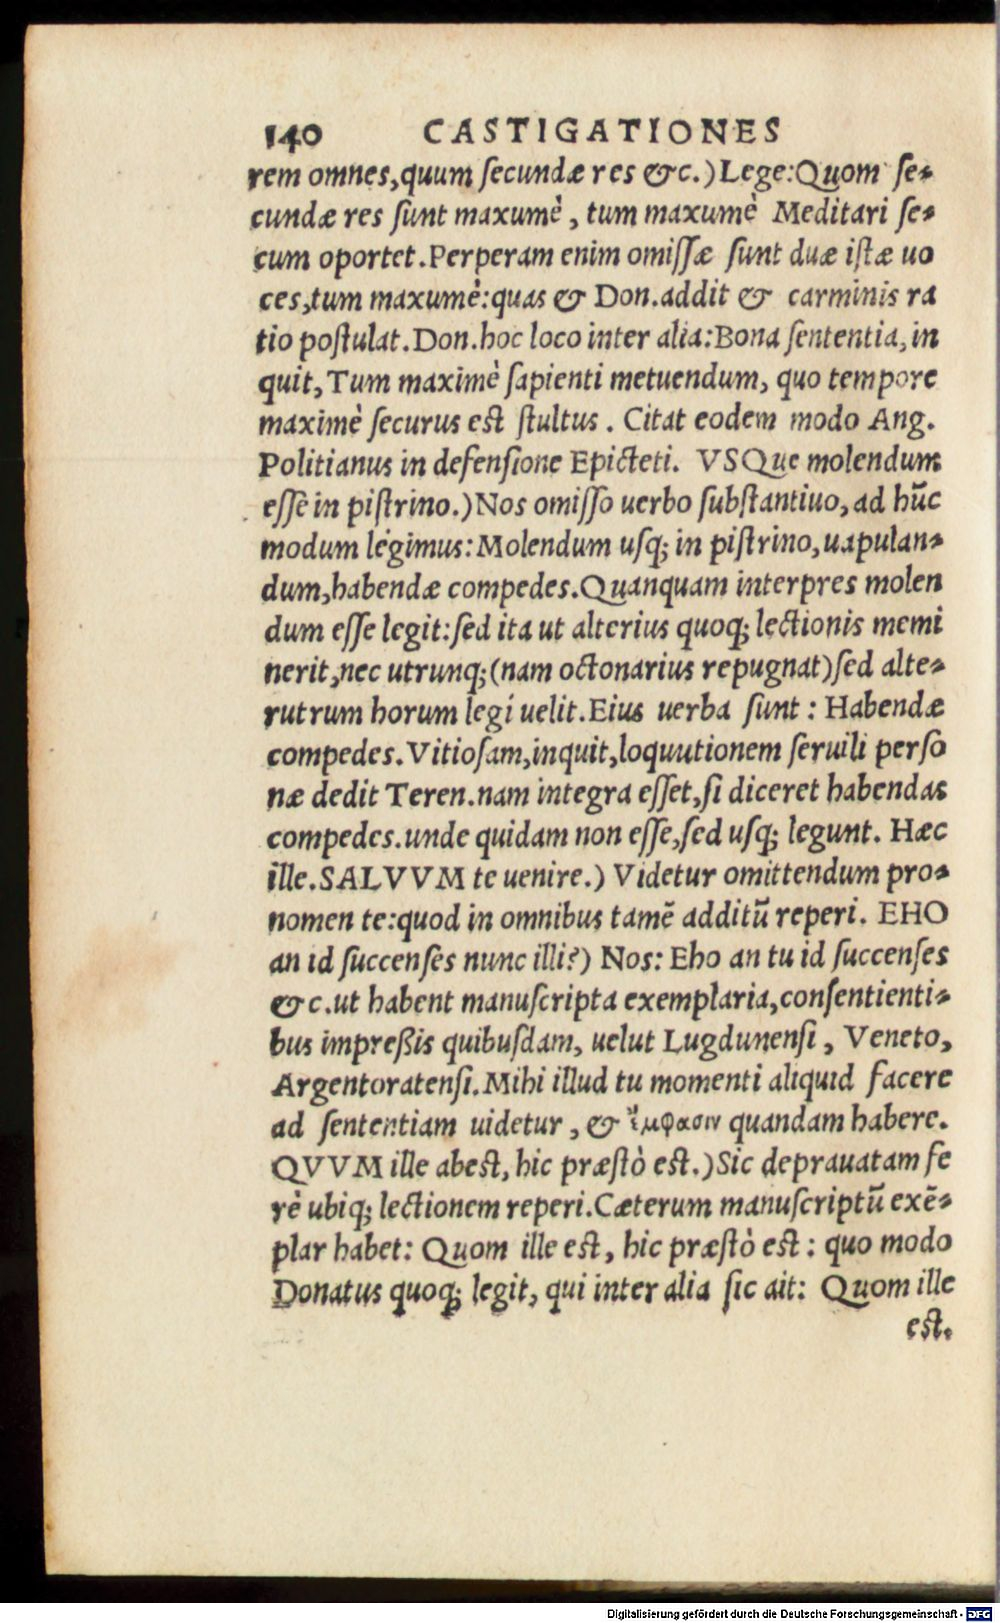 140 CASTIGATIONES
rem omnes,quum ſecundæ res &c.)Lege:Quom ſe-
cundæ res ſunt maxumè, tum maxumè Meditari ſe-
cum oportet.Perperam enim omiſſæ ſunt duæ iſtæ uo
ces,tum maxumè:quas & Don.addit & carminis ra
tio poſtulat.Don.hoc loco inter alia:Bona ſententia, in
quit, Tum maximè ſapienti metuendum, quo tempore
maximè ſecurus eſt ſtultus. Citat eodem modo Ang.
Politianus in defenſione Epicteti. VSQue molendum
eſſe in piſtrino.)Nos omiſſo uerbo ſubſtantiuo, ad hūc
modum legimus: Molendum uſq; in piſtrino, uapulan-
dum,habendæ compedes.Quanquam interpres molen
dum eſſe legit:ſed ita ut alterius quoq; lectionis memi
nerit,nec utrunq;(nam octonarius repugnat)ſed alte-
rutrum horum legi uelit.Eius uerba ſunt : Habendæ
compedes. Vitioſam,inquit,loquutionem ſeruili perſo
næ dedit Teren.nam integra eſſet,ſi diceret habendas
compedes.unde quidam non eſſe,ſed uſq; legunt. Hæc
ille.SALVVM te uenire.) Videtur omittendum pro-
nomen te:quod in omnibus tamē additū reperi. EHO
an id ſuccenſes nunc illi?) Nos: Eho an tu id ſuccenſes
&c.ut habent manuſcripta exemplaria,conſentienti-
bus impreßis quibuſdam, uelut Lugdunenſi, Veneto,
Argentoratenſi.Mihi illud tu momenti aliquid facere
ad ſententiam uidetur, & ἔμφασιν quandam habere.
QVVM ille abeſt, hic præſtò eſt.)Sic deprauatam fe
rè ubiq; lectionem reperi.Cæterum manuſcriptū exē-
plar habet: Quom ille eſt, hic præſtò eſt : quo modo
Donatus quoq; legit, qui inter alia ſic ait: Quom ille
eſt.
Digitalisierung gefördert durch die Deutsche Forschungsgemeinschaft - DFG